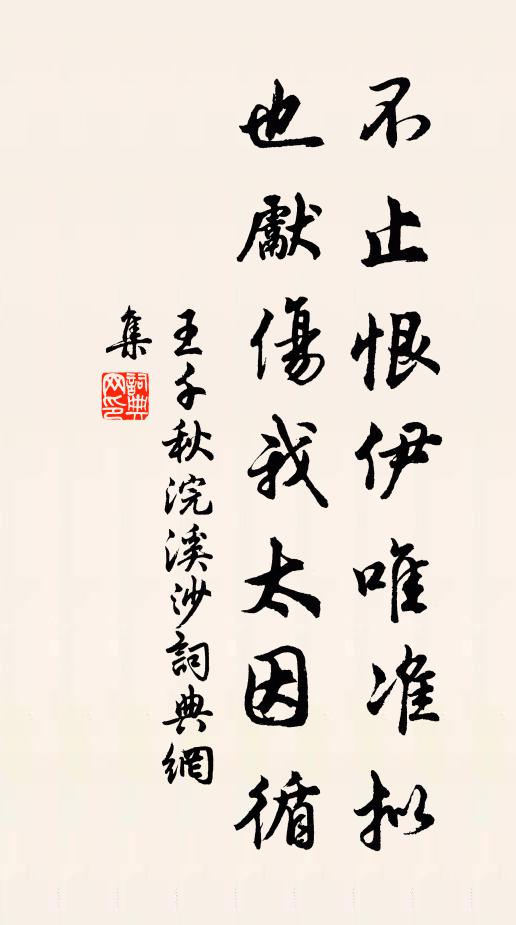 不止恨伊唯准拟
也獻傷我太因循
王千秋浣溪沙詞典網
集
詞典网印